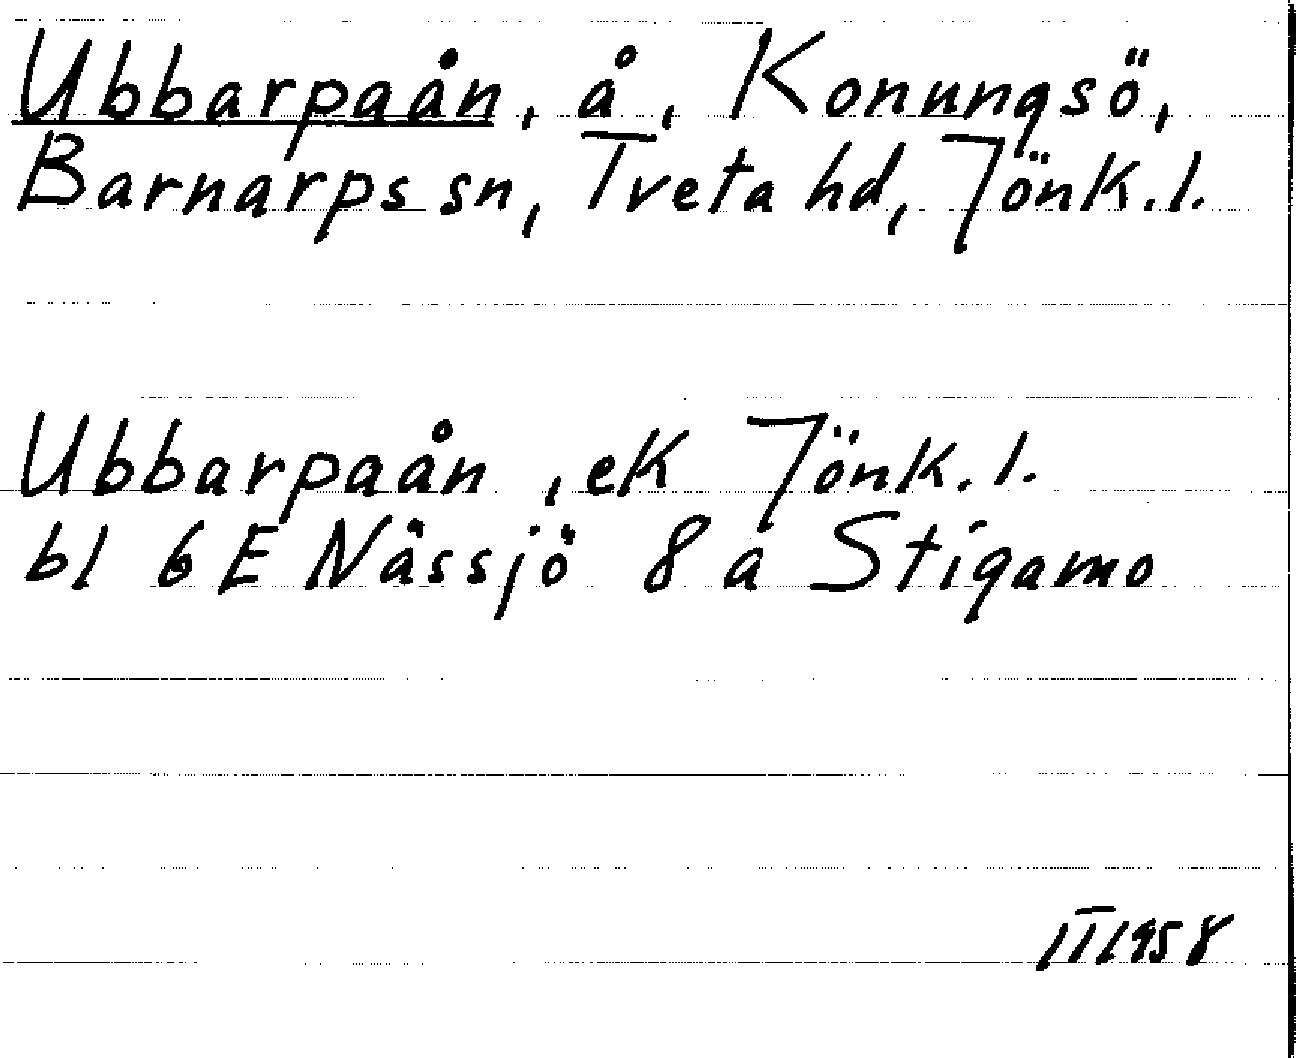 Ubbarpaån, å, Konungsö,
Barnarps sn, Tveta hd, Jönk. l.
Ubbarpaån, ek Jönk. l.
bl 6 E Nässjö 8 a Stigamo